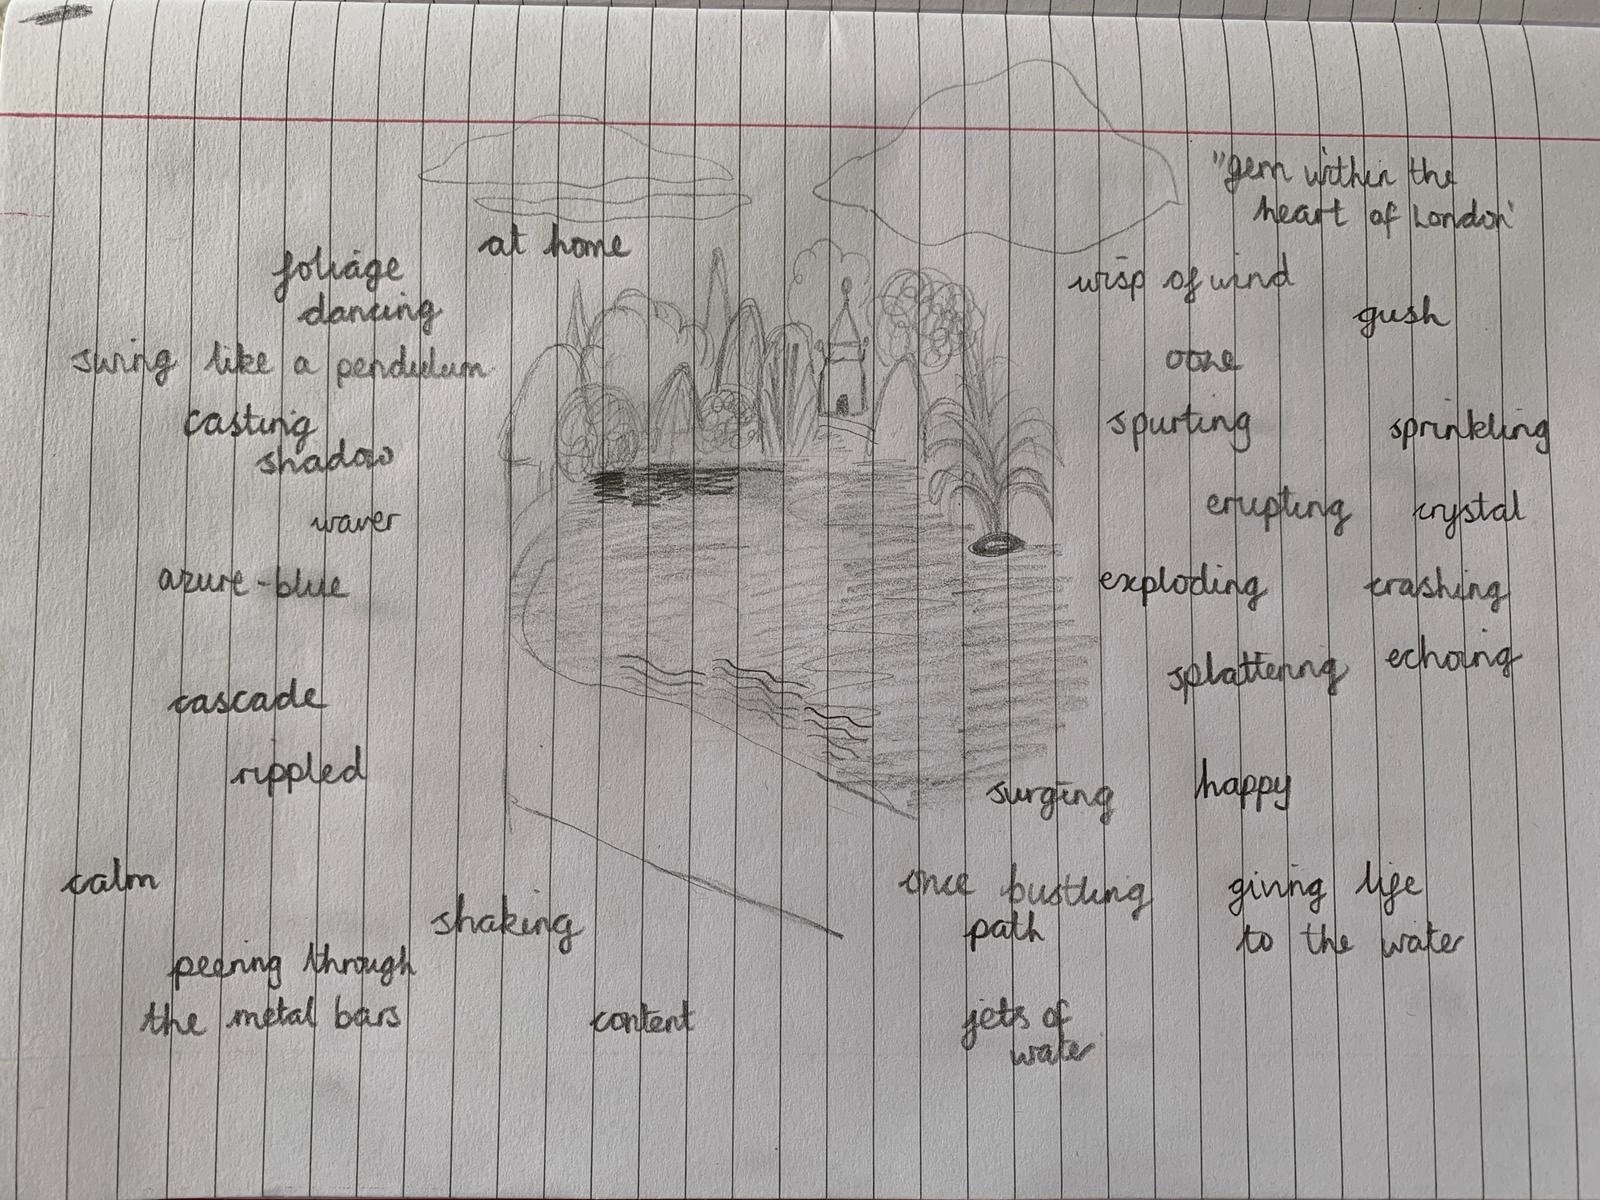 "gem within the
heart of London'
at home
foliage
dancing
wisp of wind
gush
swing like a pendulum
ooze
casting
shadow
spurting
sprinkling
waver
erupting
crystal
azure-blue
exploding
crashing
splattering
echoing
cascade
rippled
surging
happy
calm
shaking
once bustling
path
giving life
to the water
peering through
the metal bars
content
jets of
water